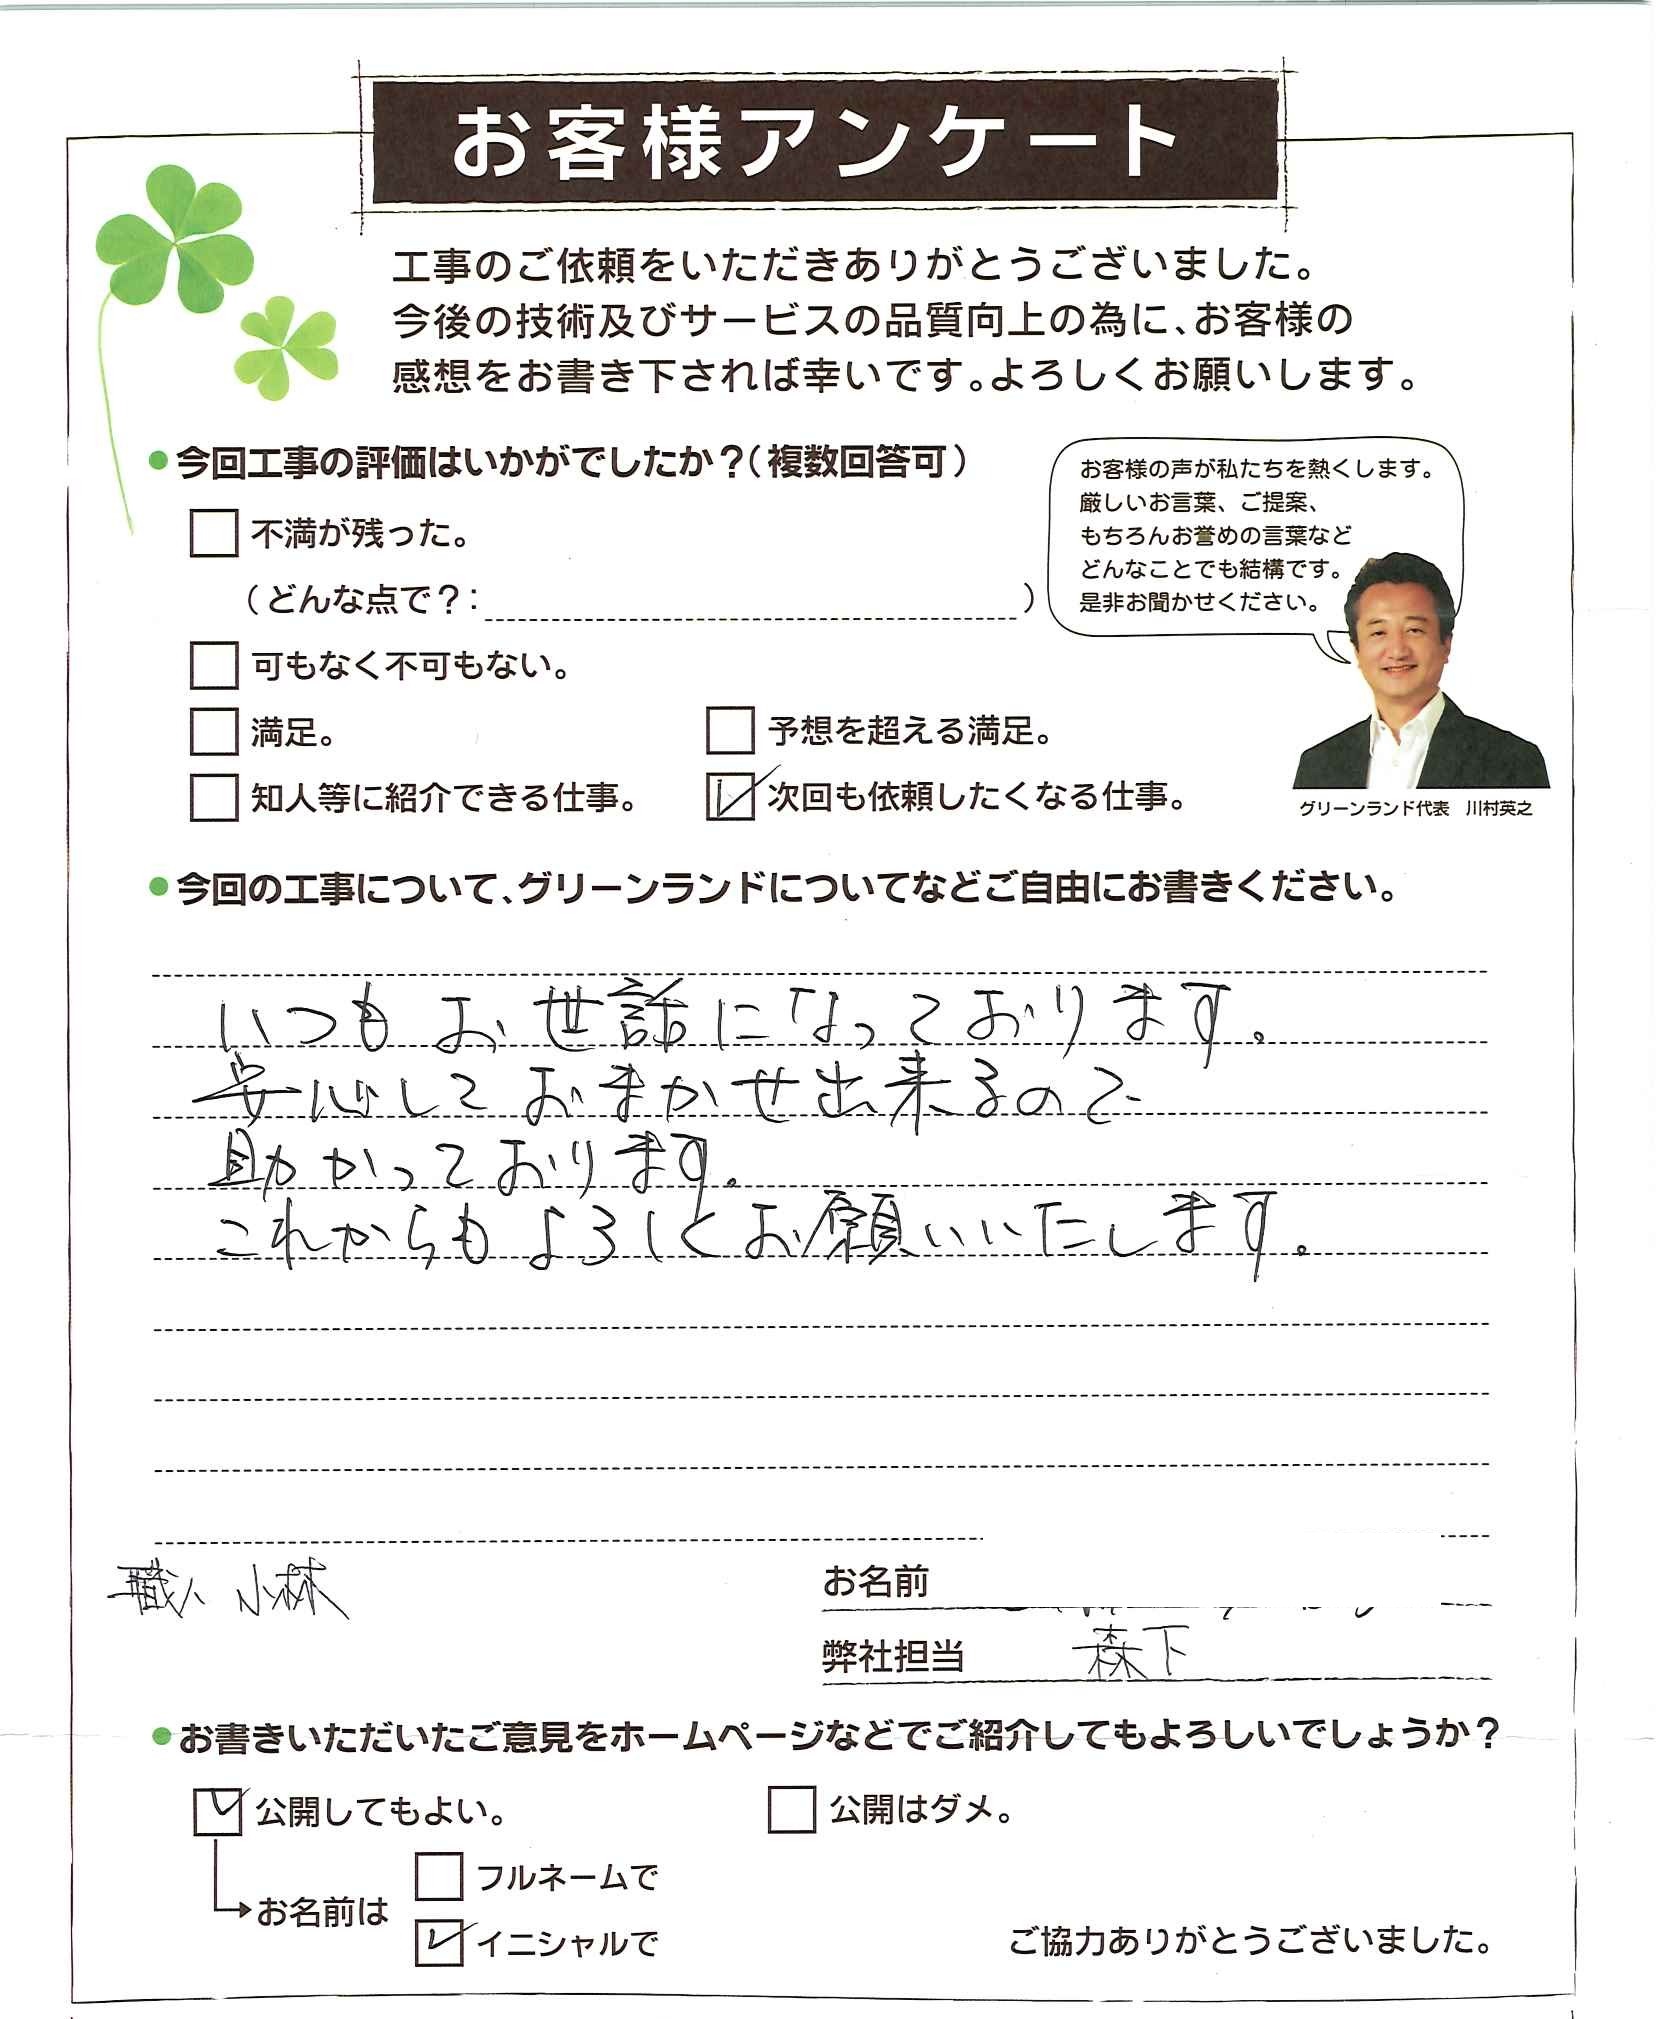 お客様アンケート
工事のご依頼をいただきありがとうございました。
今後の技術及びサービスの品質向上の為に、お客様の
感想をお書き下されば幸いです。よろしくお願いします。
●今回工事の評価はいかがでしたか?(複数回答可)
不満が残った。
(どんな点で?: )
可もなく不可もない。
満足。
予想を超える満足。
知人等に紹介できる仕事。
次回も依頼したくなる仕事。
お客様の声が私たちを熱くします。
厳しいお言葉、ご提案、
もちろんお誉めの言葉など
どんなことでも結構です。
是非お聞かせください。
グリーンランド代表 川村英之
●今回の工事について、グリーンランドについてなどご自由にお書きください。
いつもお世話になっております。
安心しておまかせ出来るので
助かっております。
これからもよろしくお願いいたします。
職人 小林
お名前
弊社担当 森下
●お書きいただいたご意見をホームページなどでご紹介してもよろしいでしょうか?
公開してもよい。
公開はダメ。
お名前は
フルネームで
イニシャルで
ご協力ありがとうございました。